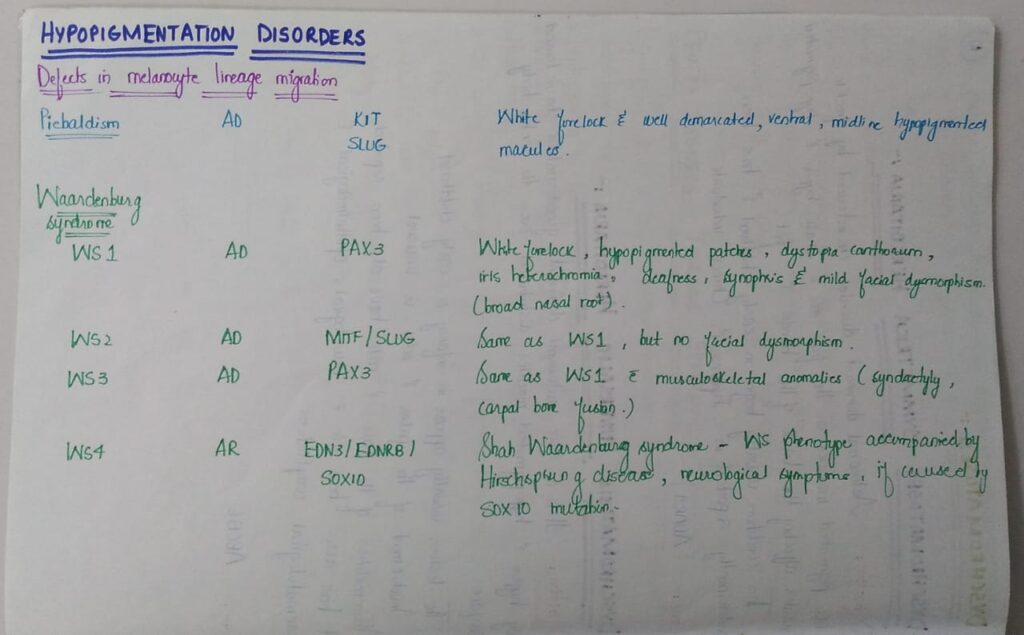 HYPOPIGMENTATION DISORDERS
Defects in melanocyte lineage migration
Piebaldism AD KIT White forelock & well demarcated, ventral, midline hypopigmented
SLUG macules.
Waardenburg
syndrome
WS1 AD PAX3 White forelock, hypopigmented patches, dystopia canthorum,
iris heterochromia, deafness, synophris & mild facial dysmorphism.
(broad nasal root).
WS2 AD MITF/SLUG Same as WS1, but no facial dysmorphism.
WS3 AD PAX3 Same as WS1 c̄ musculoskeletal anomalies (syndactyly,
carpal bone fusion.)
WS4 AR EDN3/EDNRB/ Shah Waardenburg syndrome - WS phenotype accompanied by
SOX10 Hirschsprung disease, neurological symptoms, if caused by
SOX10 mutation.